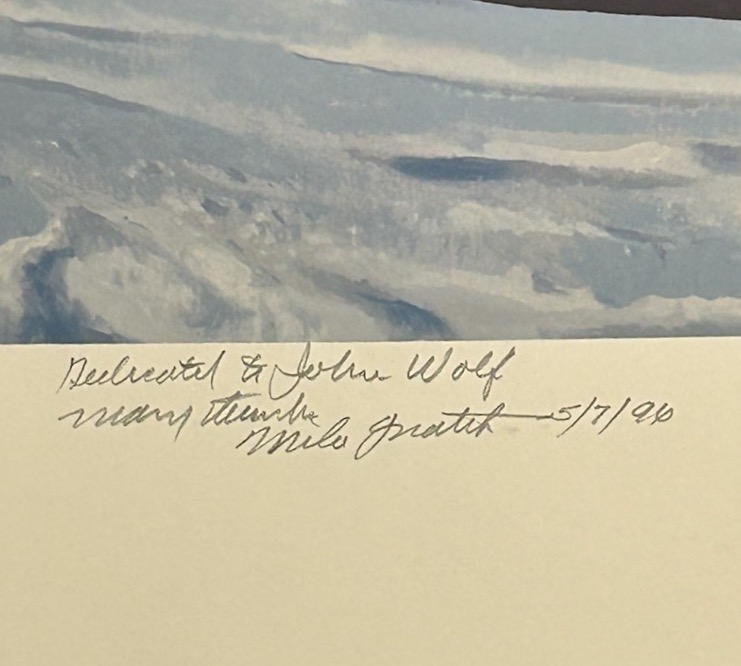 Dedicated to John Wolf
many thanks
Milo 5/7/96